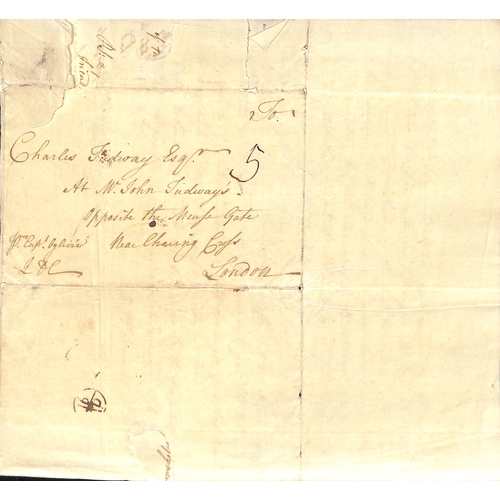 To
Charles Tudway Esqr. 5
At Mr. John Tudway's
Opposite the Meuse Gate
Near Chairing Cross
London
Capt. Ogilvie